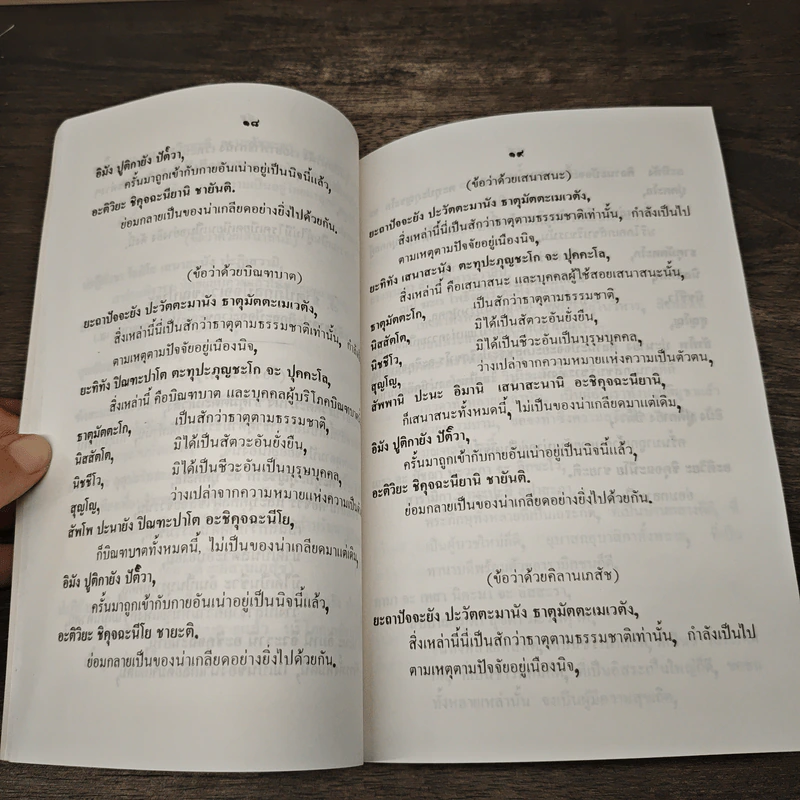 ๑๘
อิมัง ปูติกายัง ปัต๎วา,
ครั้นมาถูกเข้ากับกายอันเน่าอยู่เป็นนิจนี้แล้ว,
อะติวิยะ ชิคุจฉะนียานิ ชายันติ.
ย่อมกลายเป็นของน่าเกลียดอย่างยิ่งไปด้วยกัน.
(ข้อว่าด้วยบิณฑบาต)
ยะถาปัจจะยัง ปะวัตตะมานัง ธาตุมัตตะเมเวตัง,
สิ่งเหล่านี้นี่เป็นสักว่าธาตุตามธรรมชาติเท่านั้น,
ตามเหตุตามปัจจัยอยู่เนืองนิจ,
ยะทิทัง ปิณฑะปาโต ตะทุปะภุญชะโก จะ ปุคคะโล,
สิ่งเหล่านี้ คือบิณฑบาต และบุคคลผู้บริโภคบิณฑบาต
ธาตุมัตตะโก, เป็นสักว่าธาตุตามธรรมชาติ,
นิสสัตโต, มิได้เป็นสัตวะอันยั่งยืน,
นิชชีโว, มิได้เป็นชีวะอันเป็นบุรุษบุคคล,
สุญโญ, ว่างเปล่าจากความหมายแห่งความเป็น
สัพโพ ปะนายัง ปิณฑะปาโต อะชิคุจฉะนีโย,
ก็บิณฑบาตทั้งหมดนี้, ไม่เป็นของน่าเกลียดมาแต่เดิม,
อิมัง ปูติกายัง ปัต๎วา,
ครั้นมาถูกเข้ากับกายอันเน่าอยู่เป็นนิจนี้แล้ว,
อะติวิยะ ชิคุจฉะนีโย ชายะติ.
ย่อมกลายเป็นของน่าเกลียดอย่างยิ่งไปด้วยกัน.
๑๙
(ข้อว่าด้วยเสนาสนะ)
ยะถาปัจจะยัง ปะวัตตะมานัง ธาตุมัตตะเมเวตัง,
สิ่งเหล่านี้นี่เป็นสักว่าธาตุตามธรรมชาติเท่านั้น, กำลังเป็นไป
ตามเหตุตามปัจจัยอยู่เนืองนิจ,
ยะทิทัง เสนาสะนัง ตะทุปะภุญชะโก จะ ปุคคะโล,
สิ่งเหล่านี้ คือเสนาสนะ และบุคคลผู้ใช้สอยเสนาสนะนั้น,
ธาตุมัตตะโก, เป็นสักว่าธาตุตามธรรมชาติ,
นิสสัตโต, มิได้เป็นสัตวะอันยั่งยืน,
นิชชีโว, มิได้เป็นชีวะอันเป็นบุรุษบุคคล,
สุญโญ, ว่างเปล่าจากความหมายแห่งความเป็นตัวตน,
สัพพานิ ปะนะ อิมานิ เสนาสะนานิ อะชิคุจฉะนียานิ,
ก็เสนาสนะทั้งหมดนี้, ไม่เป็นของน่าเกลียดมาแต่เดิม,
อิมัง ปูติกายัง ปัต๎วา,
ครั้นมาถูกเข้ากับกายอันเน่าอยู่เป็นนิจนี้แล้ว,
อะติวิยะ ชิคุจฉะนียานิ ชายันติ.
ย่อมกลายเป็นของน่าเกลียดอย่างยิ่งไปด้วยกัน.
(ข้อว่าด้วยคิลานเภสัช)
ยะถาปัจจะยัง ปะวัตตะมานัง ธาตุมัตตะเมเวตัง,
สิ่งเหล่านี้นี่เป็นสักว่าธาตุตามธรรมชาติเท่านั้น, กำลังเป็นไป
ตามเหตุตามปัจจัยอยู่เนืองนิจ,